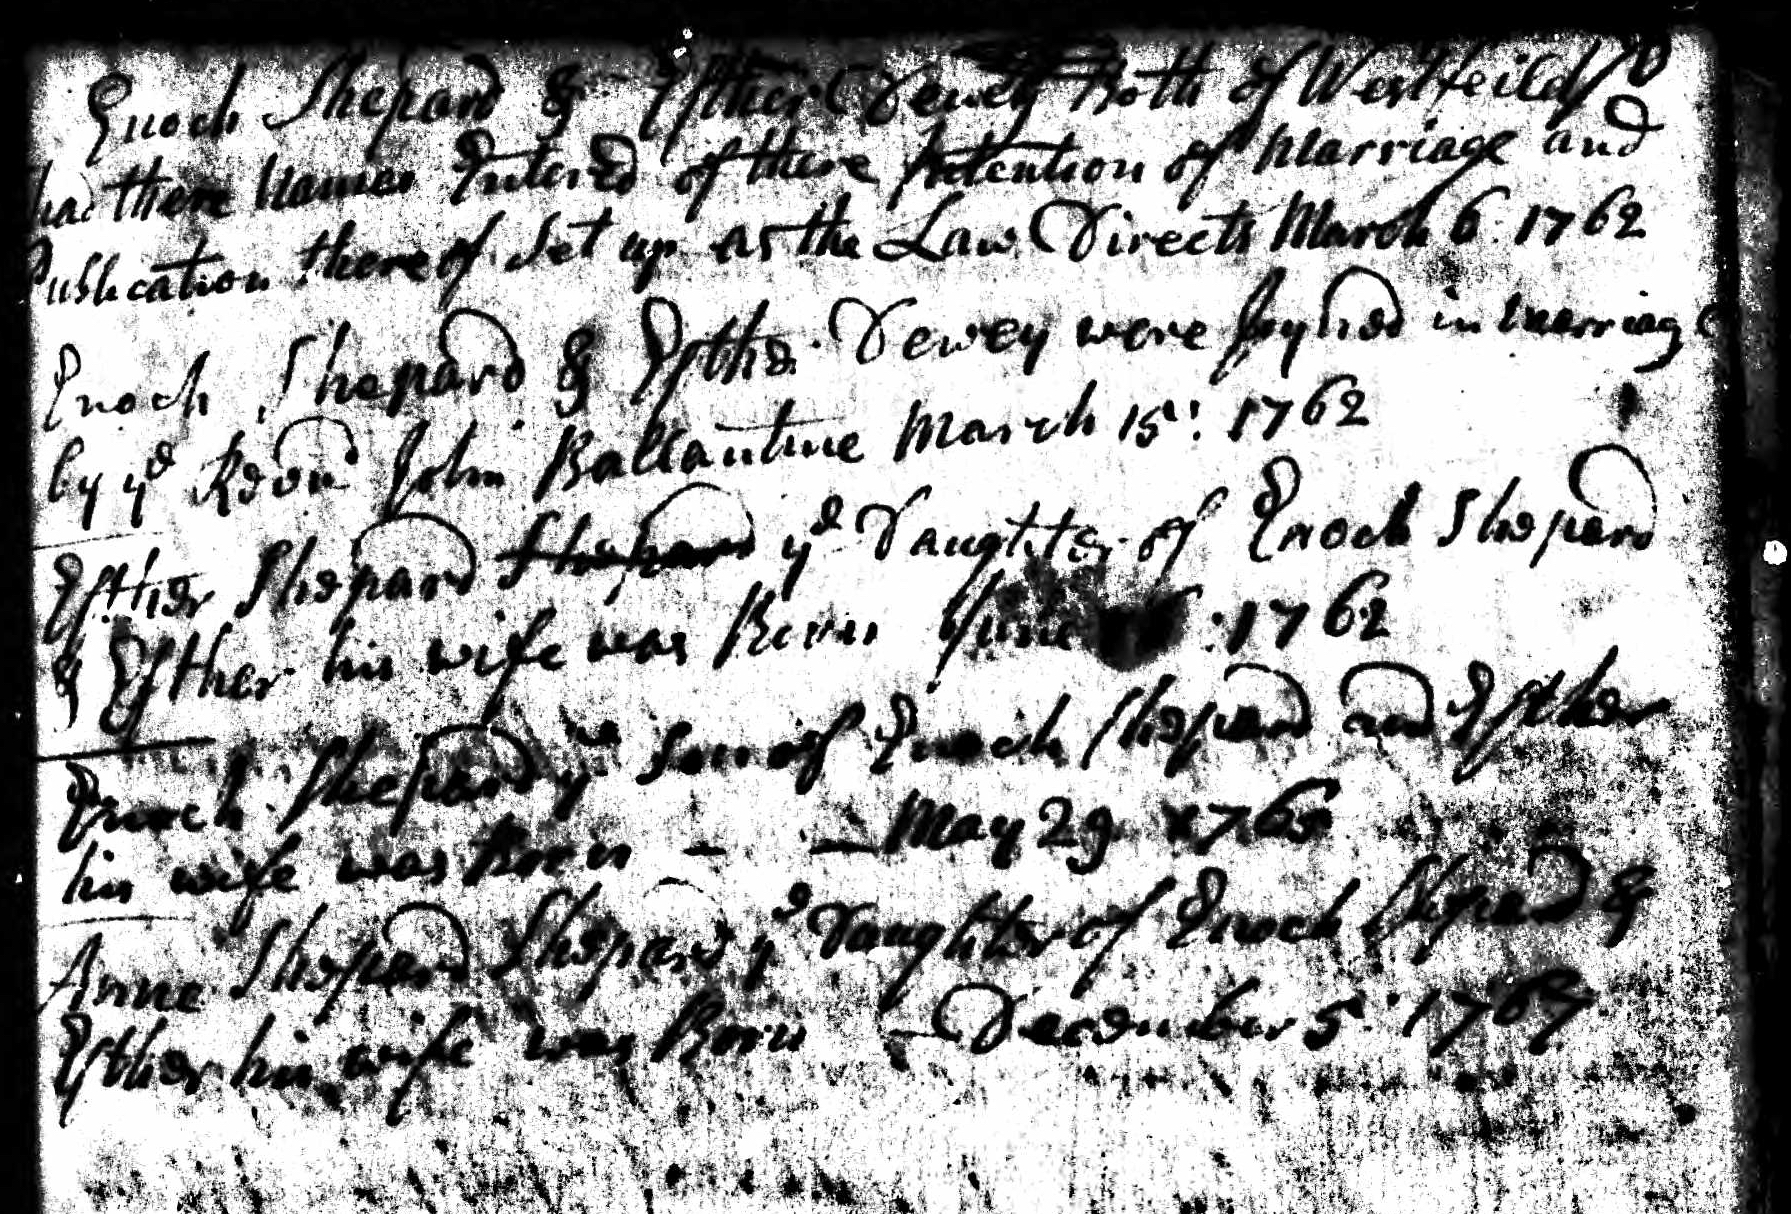 Enoch Shepard & Esther Dewey Both of Westfeild
had there Names Entered of there Intention of Marriage and
Publication thereof Set up as the Law Directs March 6: 1762
Enoch Shepard & Esther Dewey were Joyned in marriage
by ye Revnd John Ballantine March 15: 1762
Esther Shepard Shepard ye Daughter of Enoch Shepard
& Esther his wife was Born June : 1762
Enoch Shepard ye Son of Enoch Shepard and Esther
his wife was Born — — May 29 1765
Anne Shepard Shepard ye Daughter of Enoch Shepard &
Esther his wife was Born — December 5: 1767